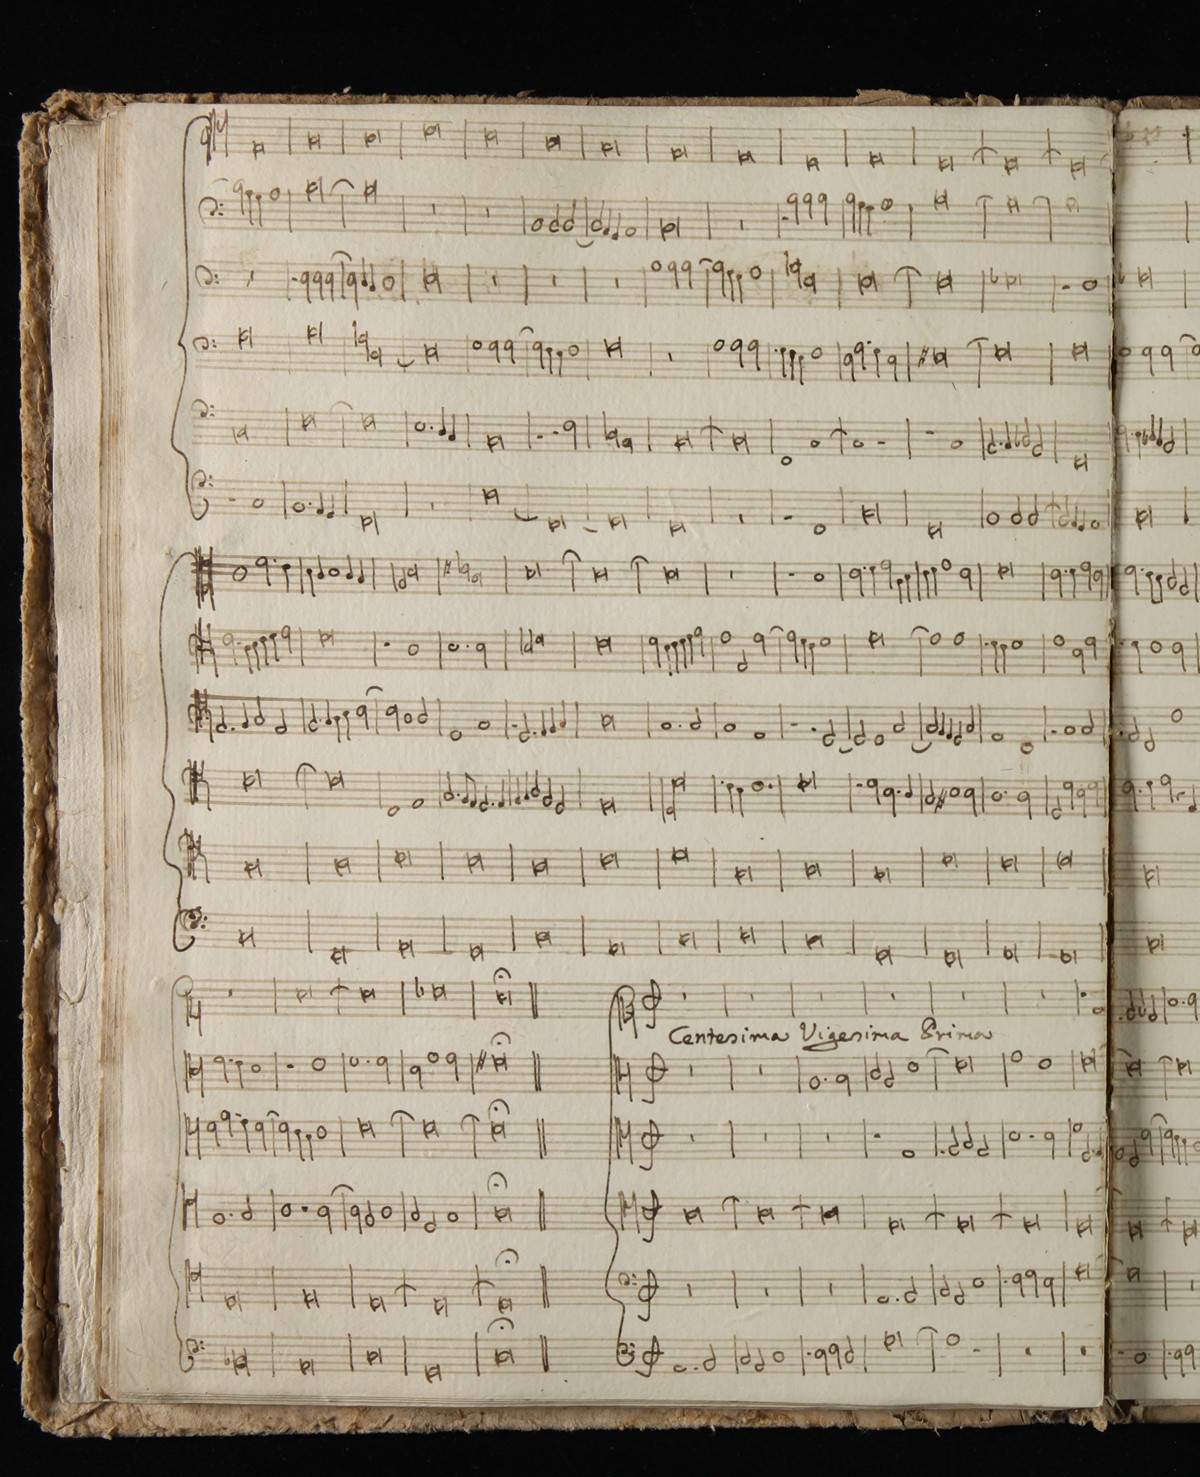 Centesima Vigesima Prima